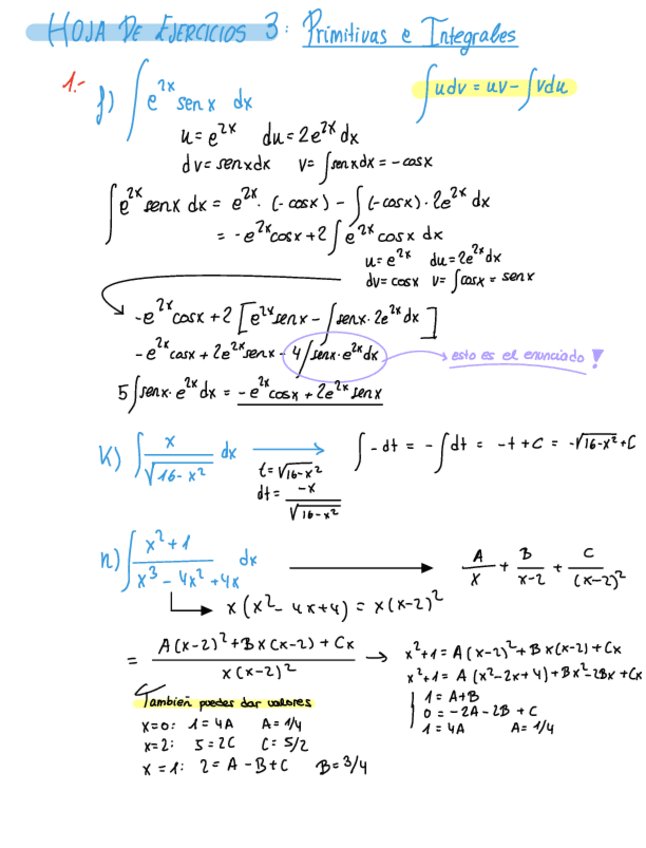 HOJA DE EJERCICIOS 3: Primitivas e Integrales
1.-
f) ∫ e^2x sen x dx
∫udv = uv - ∫vdu
u = e^2x du = 2e^2x dx
dv = senxdx v = ∫senxdx = -cosx
∫ e^2x senx dx = e^2x · (-cosx) - ∫(-cosx) · 2e^2x dx
= -e^2x cosx + 2∫e^2x cosx dx
u = e^2x du = 2e^2x dx
dv = cosx v = ∫cosx = senx
-e^2x cosx + 2 [e^2x senx - ∫senx · 2e^2x dx]
-e^2x cosx + 2e^2x senx - 4∫senx · e^2x dx → esto es el enunciado !
5∫senx · e^2x dx = -e^2x cosx + 2e^2x senx
K) ∫ x/√(16-x²) dx → ∫-dt = -∫dt = -t + C = -√(16-x²) + C
t = √(16-x²)
dt = -x/√(16-x²)
n) ∫ (x²+1)/(x³ - 4x² + 4x) dx → A/x + B/(x-2) + C/(x-2)²
x(x² - 4x + 4) = x(x-2)²
= (A(x-2)² + Bx(x-2) + Cx)/(x(x-2)²) → x²+1 = A(x-2)² + Bx(x-2) + Cx
x²+1 = A(x²-2x+4) + Bx² - 2Bx + Cx
1 = A+B
0 = -2A - 2B + C
1 = 4A A = 1/4
También puedes dar valores
x=0: 1 = 4A A = 1/4
x=2: 5 = 2C C = 5/2
x = 1: 2 = A - B + C B = 3/4